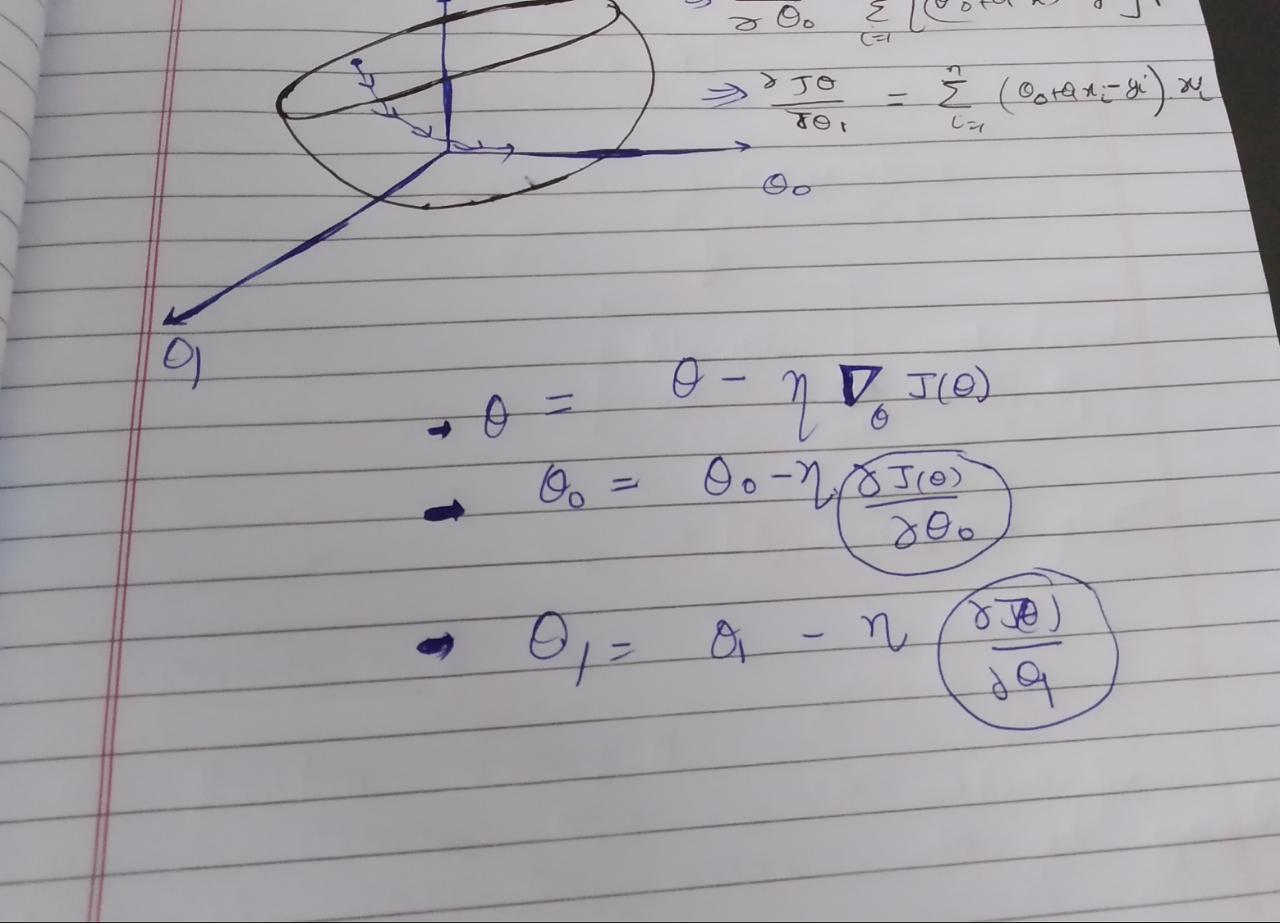 ∂θ₀ Σ i=1 [(θ₀+θ
⇒ ∂Jθ/∂θ₁ = Σ i=1 n (θ₀+θ₁xᵢ-yᵢ) xᵢ
θ₀
θ₁
→ θ = θ - η ∇θ J(θ)
→ θ₀ = θ₀ - η ∂J(θ)/∂θ₀
→ θ₁ = θ₁ - η ∂J(θ)/∂θ₁